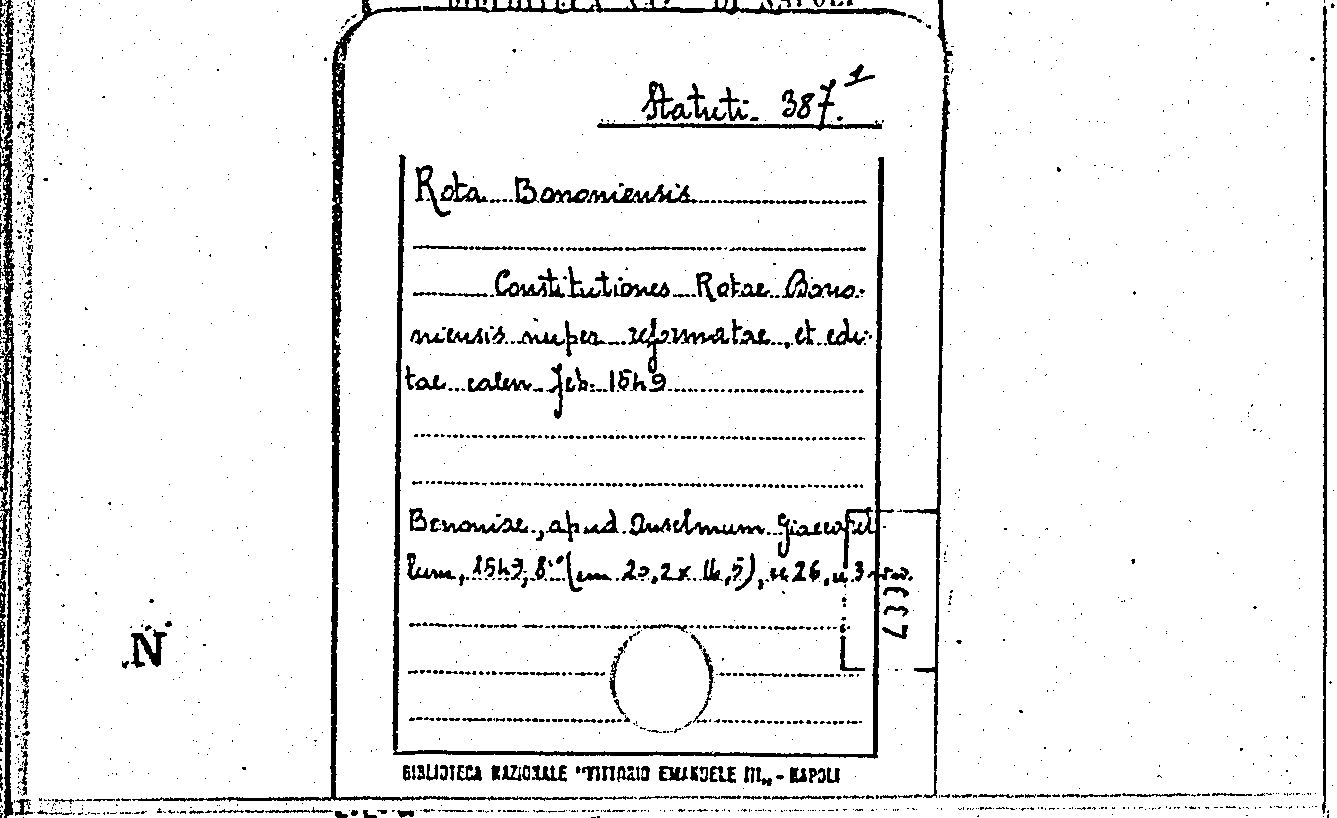 Statuti. 387.1
Rota Bononiensis
Constitutiones Rotae Bono-
niensis nuper reformatae, et edi-
tae calen. Feb. 1549
Bononiae, apud Anselmum Giaccarel
lum, 1549, 8° (cm 20,2 x 14,5), c 26,
N
BIBLIOTECA NAZIONALE "VITTORIO EMANUELE III„ - NAPOLI